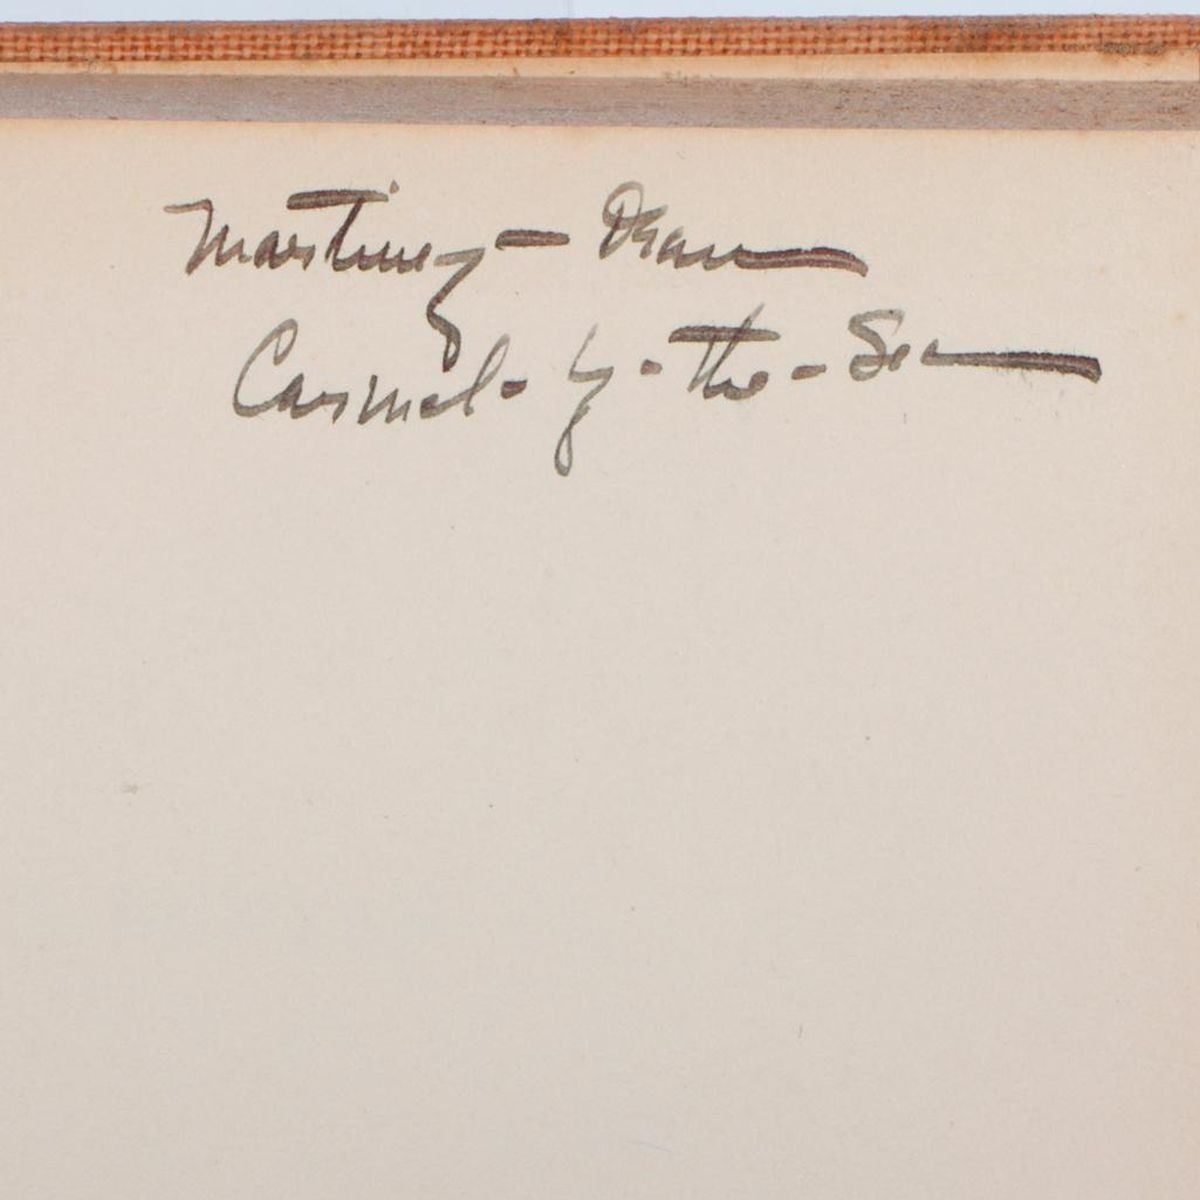 Martinez - Dean
Carmel - by - the - Sea